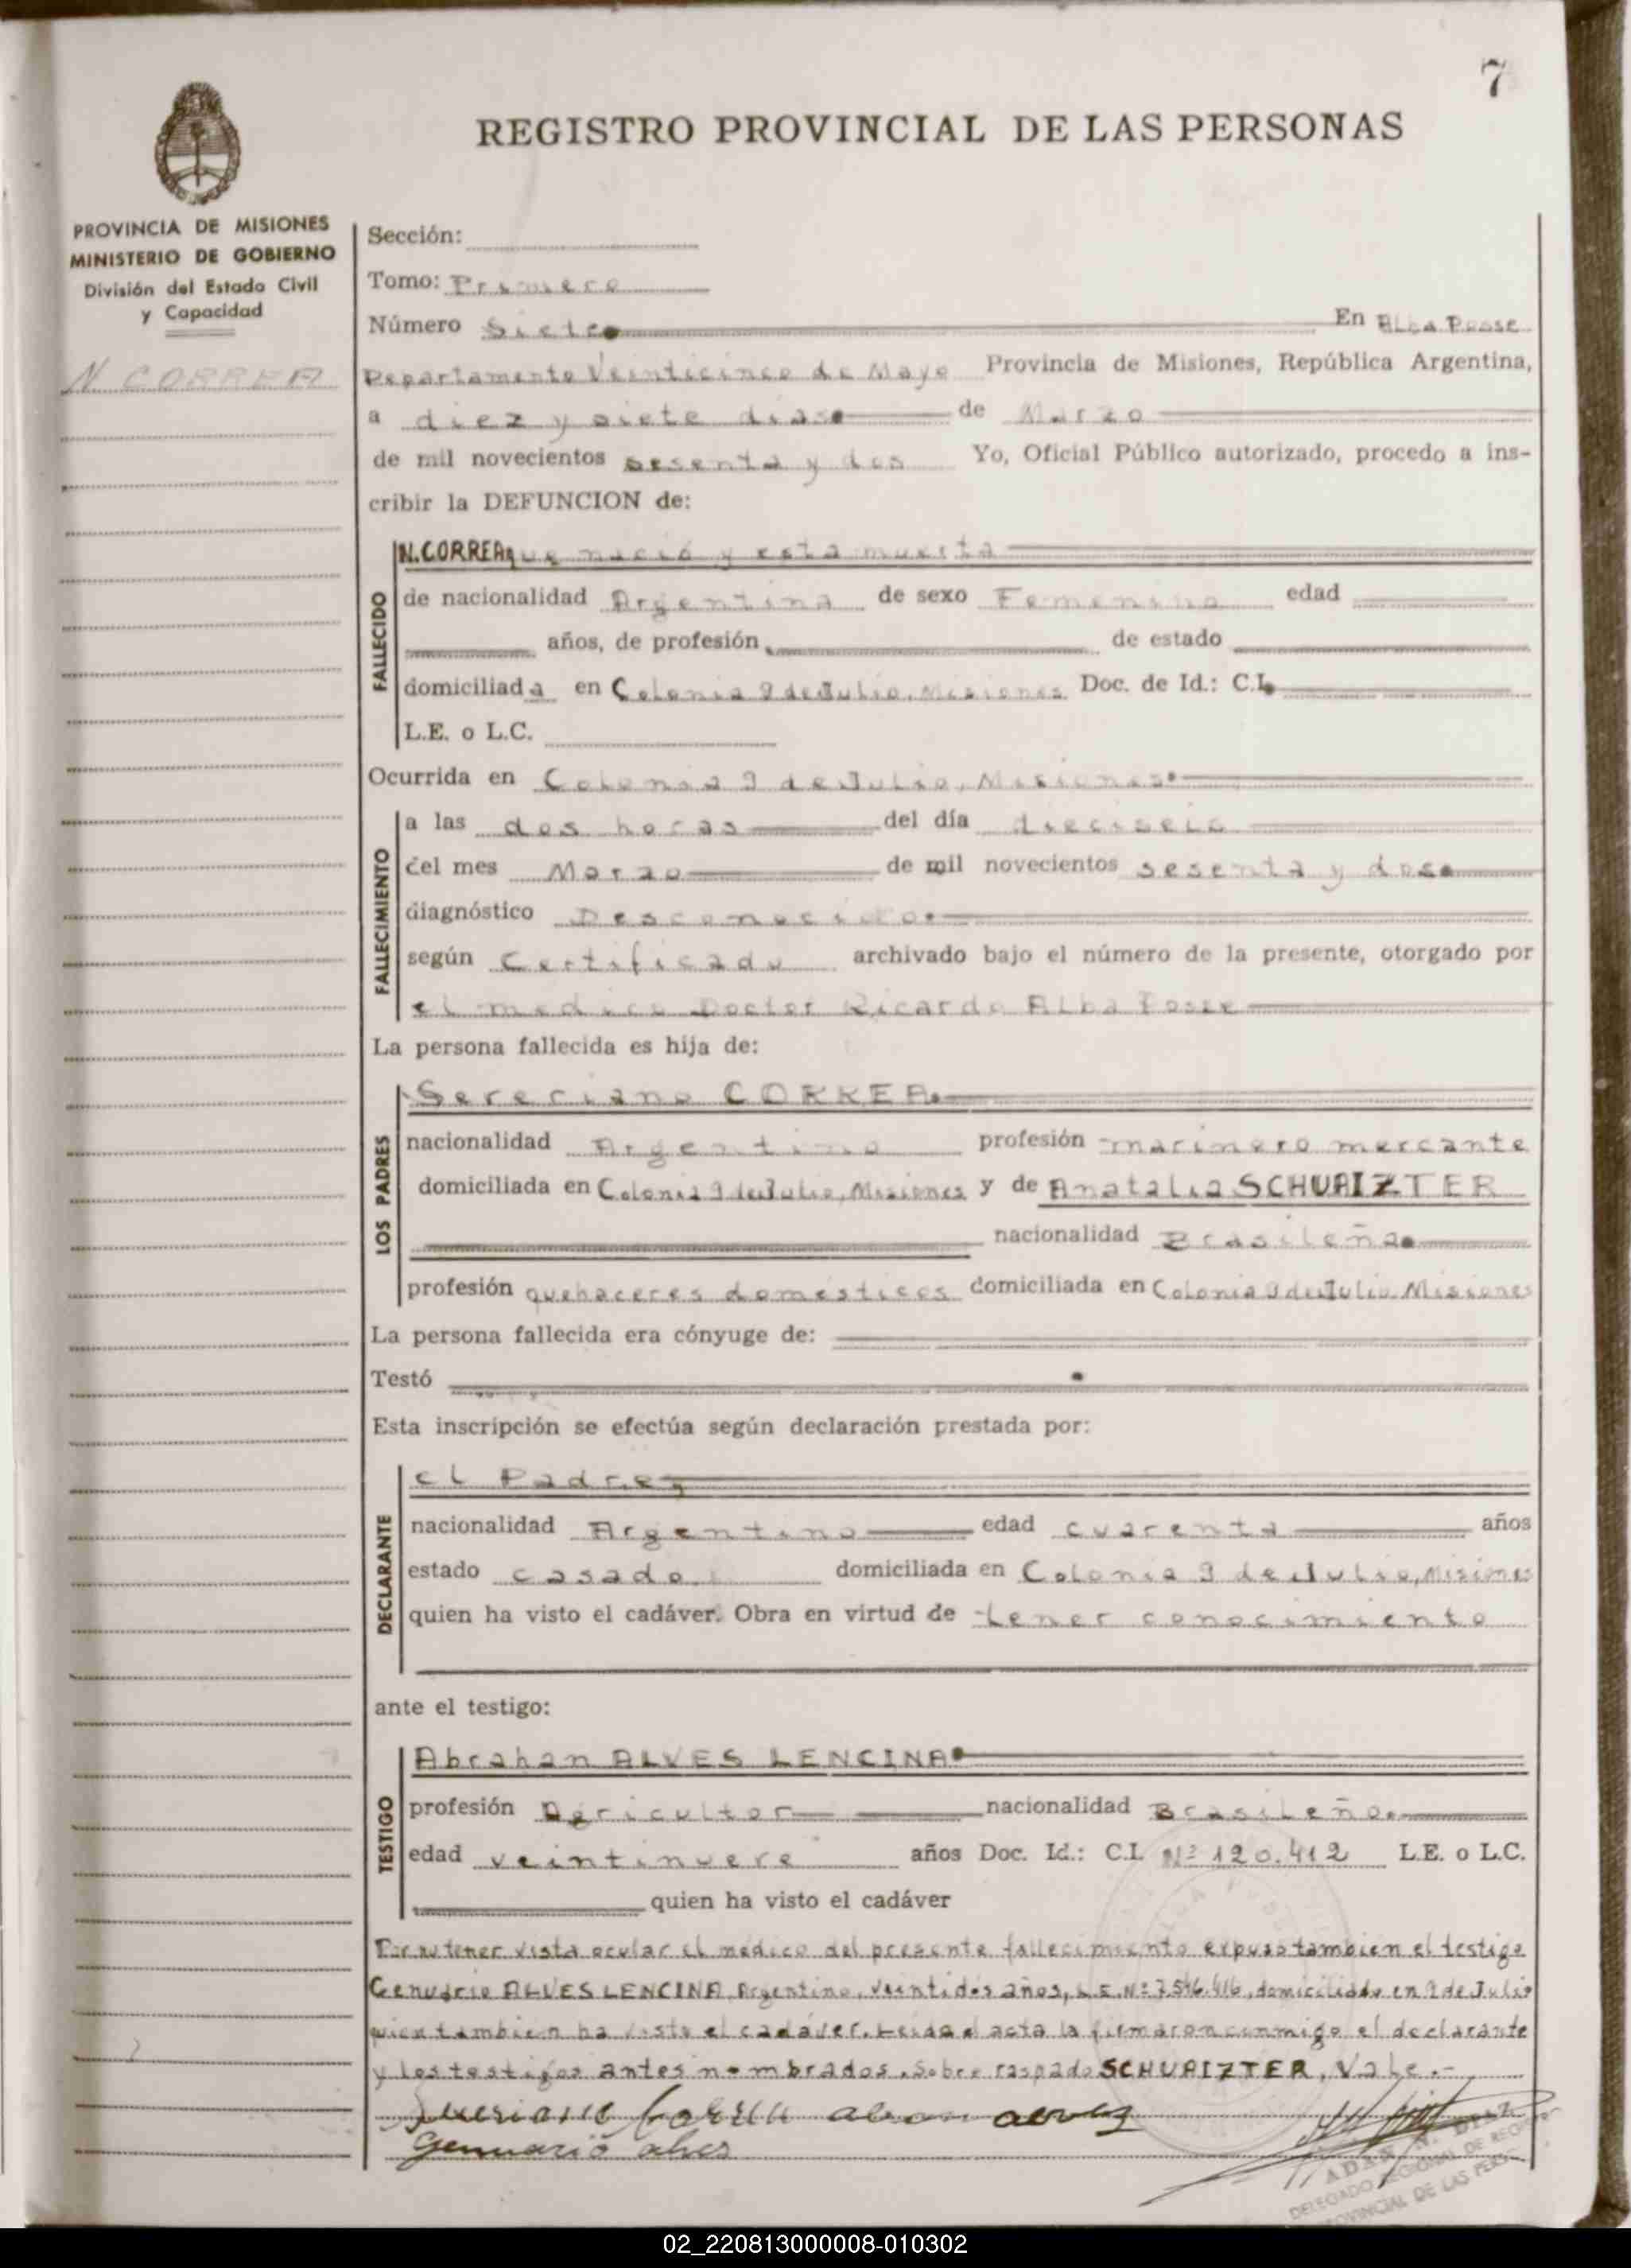 7
REGISTRO PROVINCIAL DE LAS PERSONAS
PROVINCIA DE MISIONES
MINISTERIO DE GOBIERNO
División del Estado Civil
y Capacidad
N. CORREA
Sección:
Tomo: Primero
Número Siete En Alba Posse
Departamento Veinticinco de Mayo Provincia de Misiones, República Argentina,
a diez y siete dias de Marzo
de mil novecientos sesenta y dos Yo, Oficial Público autorizado, procedo a ins-
cribir la DEFUNCION de:
FALLECIDO
N. CORREA que nació y esta muerta
de nacionalidad Argentina de sexo Femenino edad
años, de profesión de estado
domiciliada en Colonia 9 de Julio, Misiones Doc. de Id.: C.I.
L.E. o L.C.
Ocurrida en Colonia 9 de Julio, Misiones.
FALLECIMIENTO
a las dos horas del día dieciseis
del mes Marzo de mil novecientos sesenta y dos
diagnóstico Desconocido.
según Certificado archivado bajo el número de la presente, otorgado por
el medico Doctor Ricardo Alba Posse
La persona fallecida es hija de:
LOS PADRES
Sereciano CORREA.
nacionalidad Argentino profesión marinero mercante
domiciliada en Colonia 9 de Julio, Misiones y de Anatalia SCHUAIZTER
nacionalidad Brasileña.
profesión quehaceres domésticos domiciliada en Colonia 9 de Julio Misiones
La persona fallecida era cónyuge de:
Testó
Esta inscripción se efectúa según declaración prestada por:
DECLARANTE
el Padre,
nacionalidad Argentino edad cuarenta años
estado casado domiciliada en Colonia 9 de Julio, Misiones
quien ha visto el cadáver. Obra en virtud de tener conocimiento
ante el testigo:
TESTIGO
Abrahan ALVES LENCINA
profesión Agricultor nacionalidad Brasileño.
edad veintinueve años Doc. Id.: C.I. Nº 120.412 L.E. o L.C.
quien ha visto el cadáver
Por no tener vista ocular el medico del presente fallecimiento expuso tambien el testigo
Genuario ALVES LENCINA, Argentino, veintidos años, L.E. Nº 7.546.416, domiciliado en 9 de Julio
quien tambien ha visto el cadaver. Leida el acta la firmaron conmigo el declarante
y los testigos antes nombrados. Sobre raspado SCHUAIZTER, Vale.-
Genuario alves
DELEGADO REGIONAL DE
PROVINCIAL DE LAS PERS
02_220813000008-010302